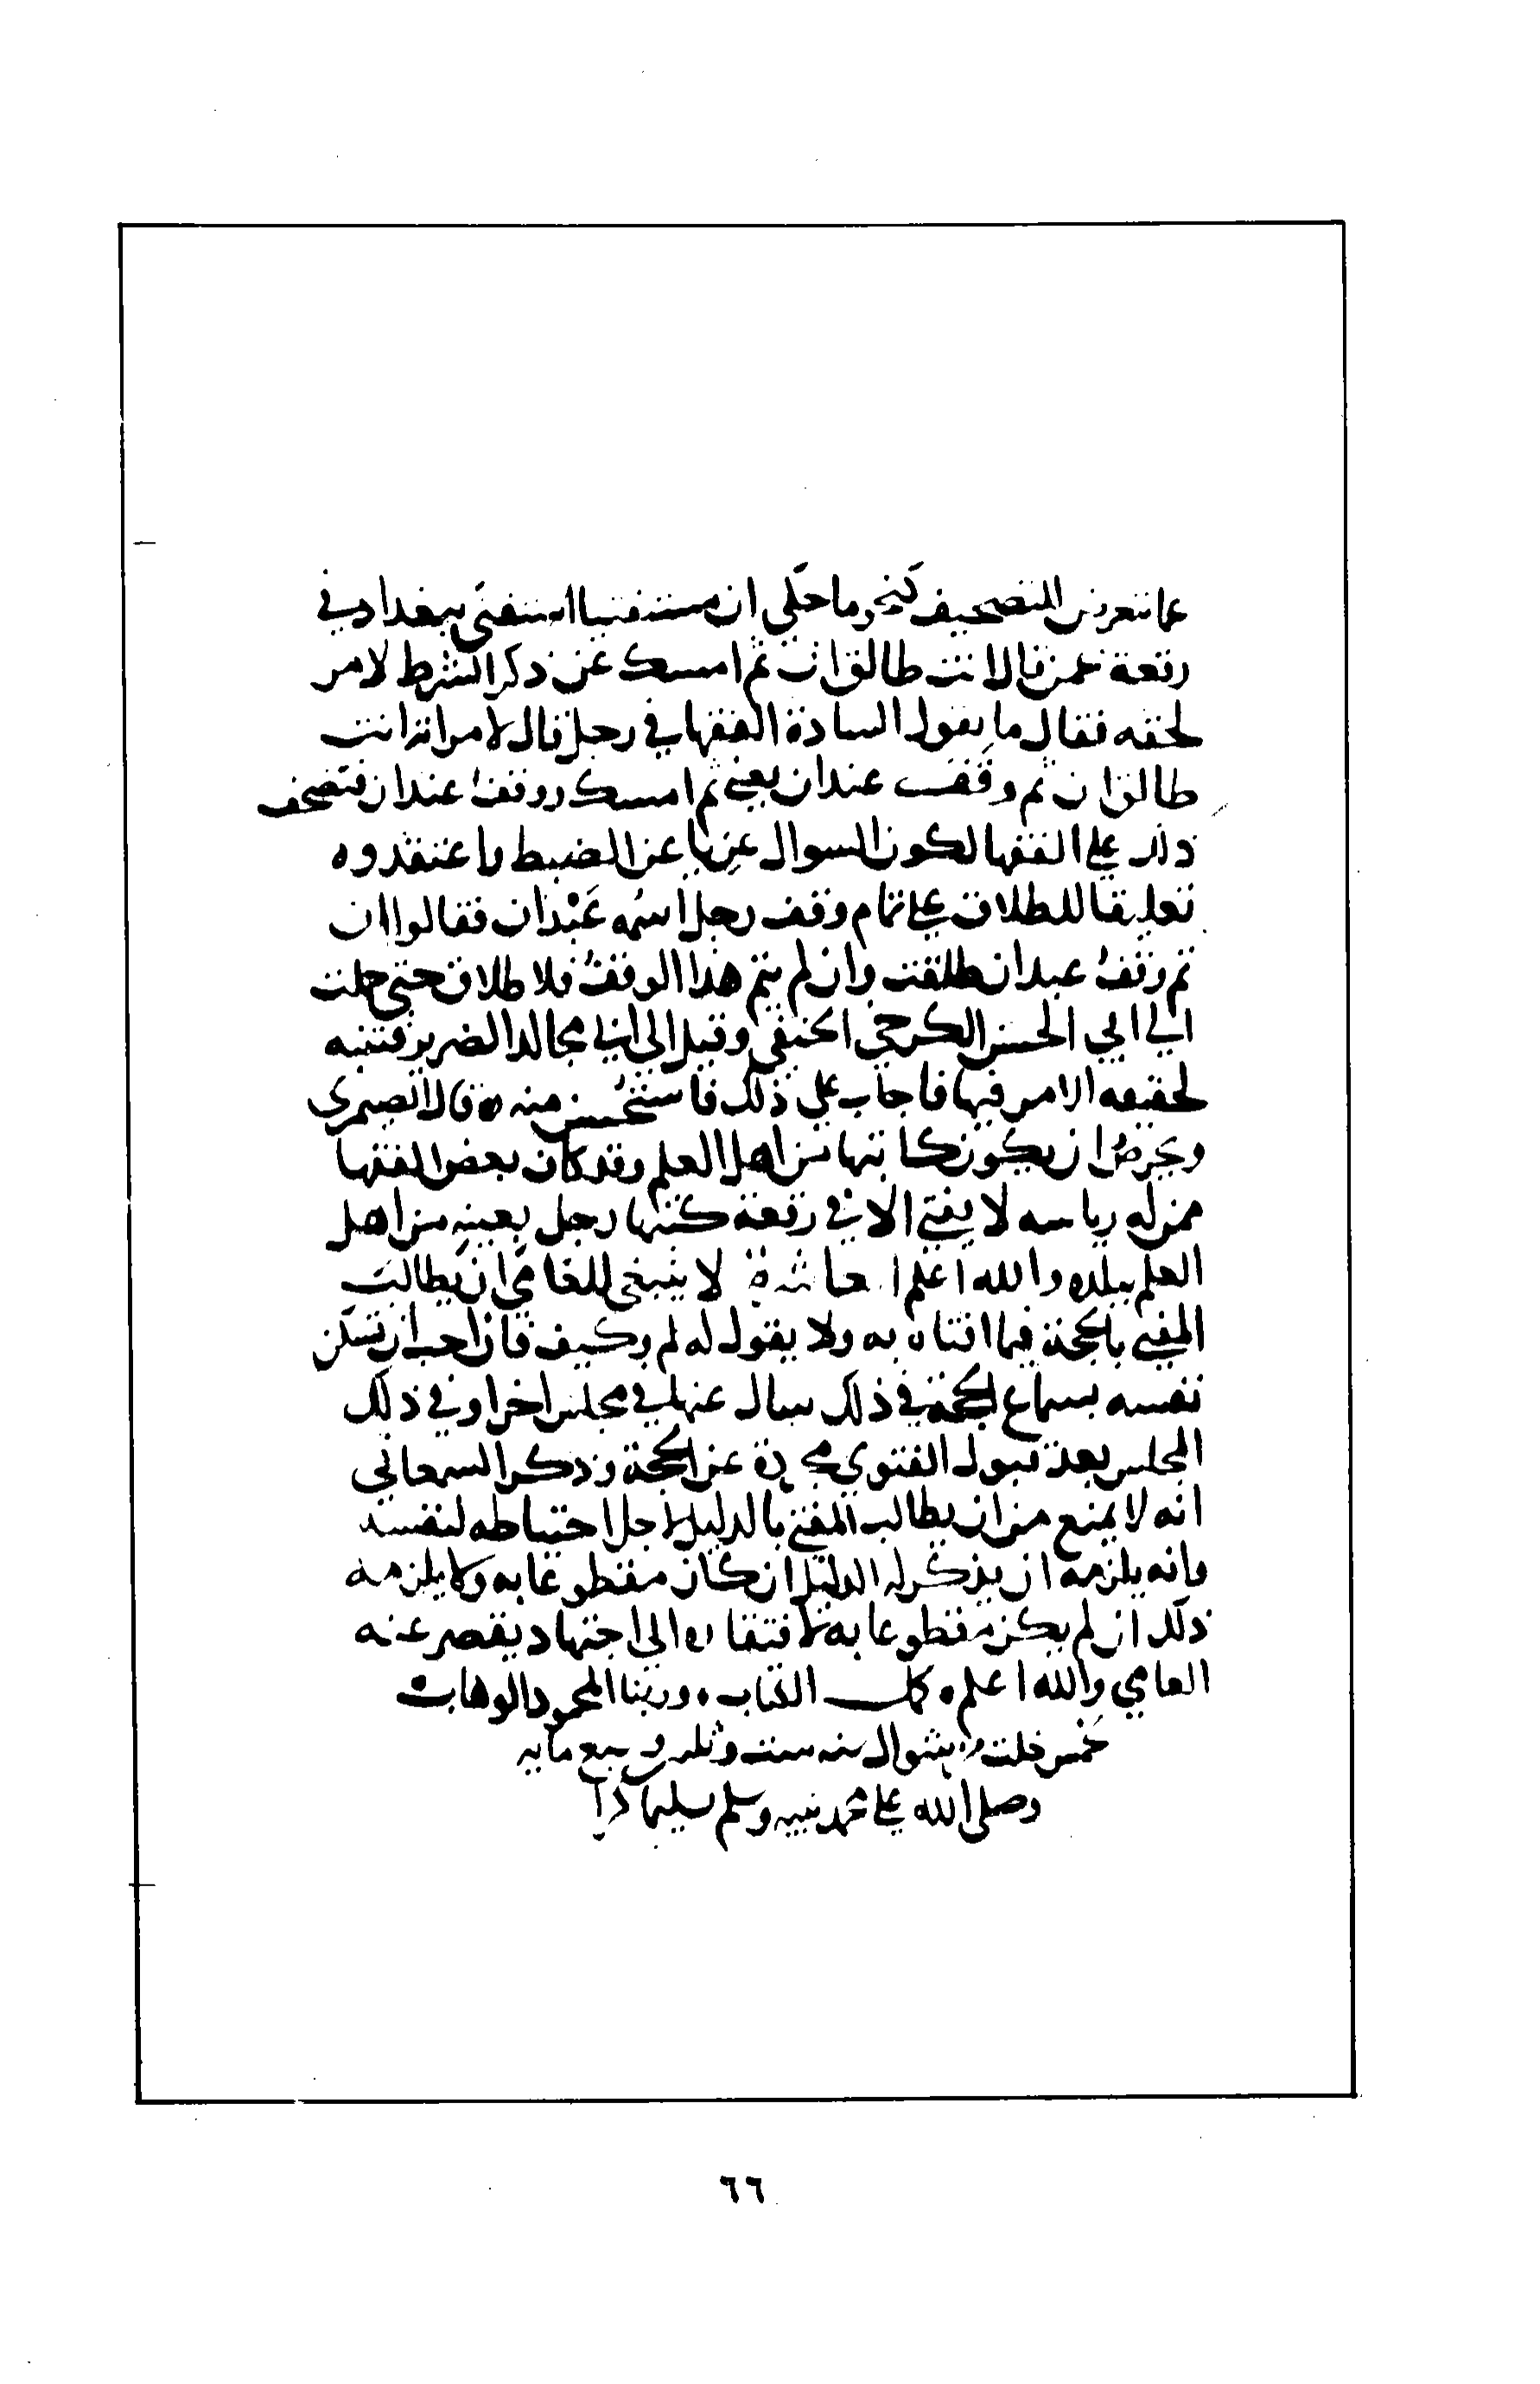 عما تتعرض للتصحيف كنحو ما حكي ان مستفتيا استفتى ببغداد في
رقعة عمن قال لا انت طالق ان ثم امسك عن ذكر الشرط لامر
لحقه فقال ما يقول السادة الفقها في رجل قال لامراته انت
طالق ان ثم وقف عند ان يعني ثم امسك ووقف عند ان فتصحف
ذلك على الفقها لكون السوال عريا عن الضبط واعتقدوه
تعليقا للطلاق على تمام وقف رجل اسمه عَبْدان فقالوا ان
تم وقفُ عبدان طلقت وان لم يتم هذا الوقفُ فلا طلاق حتى حملت
الى ابي الحسن الكرخي الحنفي وقيل الى ابي مجالد الضرير فتنبه
لحقيقه الامر فيها فاجاب على ذلك فاستُحسن منه ه قال الصيمري
ويحرصُ ان يكون كاتبها من اهل العلم وقد كان بعض الفقها
ممن له رياسه لا يفتي الا في رقعة كتبها رجل بعينه من اهل
العلم ببلده والله اعلم العاشرة لا ينبغي للعامي ان يطالب
المفتي بالحجة فيما افتاه به ولا يقول له لم وكيف فان احب ان تسكن
نفسه بسماع الحجة في ذلك سال عنها في مجلس اخر او في ذلك
المجلس بعد قبول الفتوى مجردة عن الحجة وذكر السمعاني
انه لا يمنع من ان يطالب المفتي بالدليل لاجل احتياطه لنفسه
وانه يلزمه ان يذكر له الدليل ان كان مقطوعا به ولا يلزمه
ذلك ان لم يكن مقطوعا به لافتقاره الى اجتهاد يقصر عنه
العامي والله اعلم ه كمل الكتاب ه وربنا المحمود الوهاب
لخمس خلت من شوال سنه ست وثلثين وسبع مايه
وصلى الله على محمد نبيه وسلم تسليما
٦٦